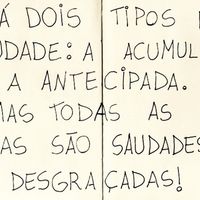 Á DOIS TIPOS
UDADE: A ACUMUL
A ANTECIPADA.
MAS TODAS AS
AS SÃO SAUDADES
DESGRAÇADAS!